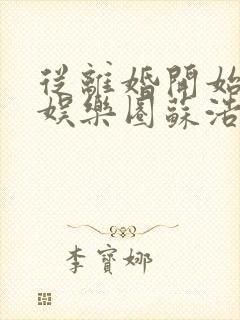 從離婚開始
娛樂圈蘇浩
李寶娜